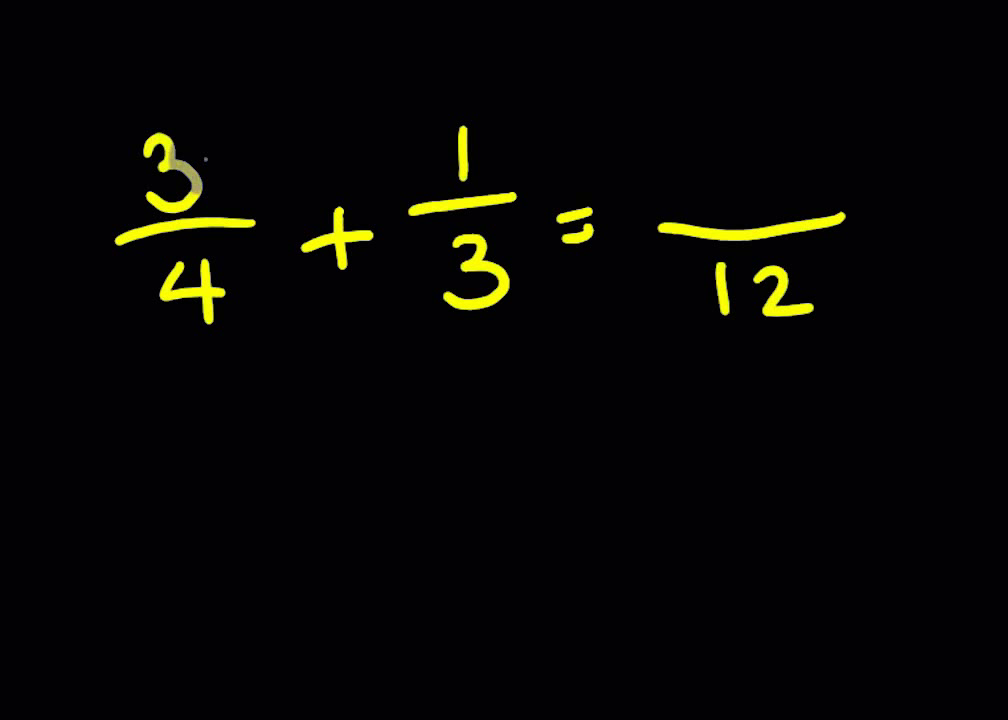 3/4 + 1/3 = /12